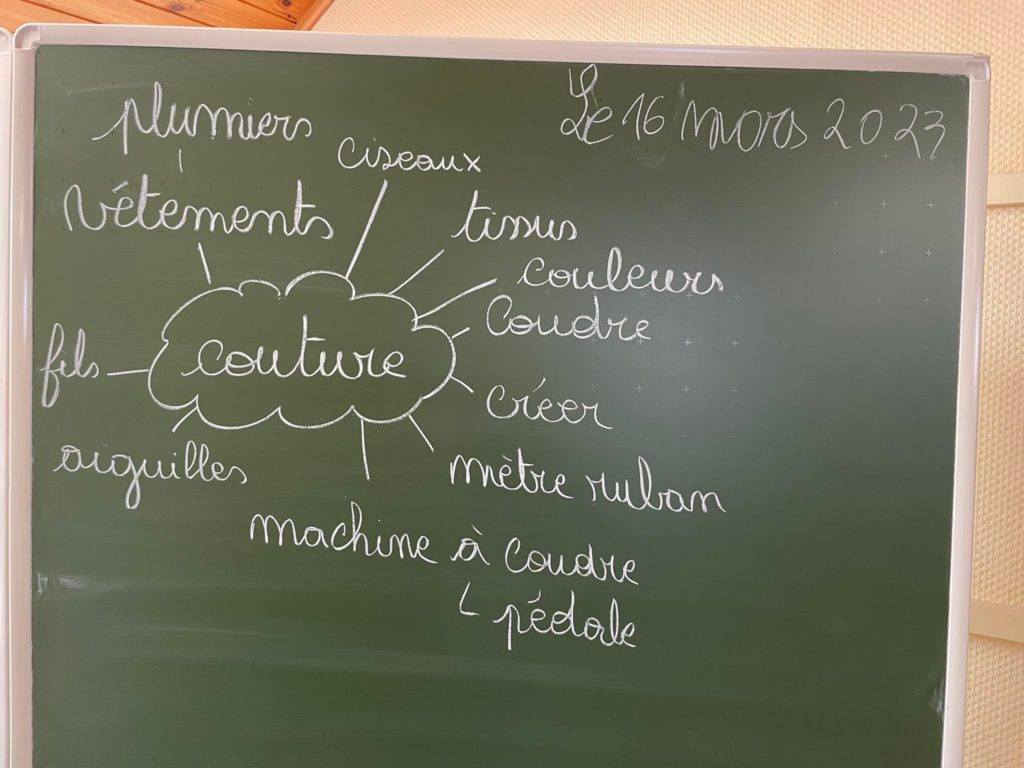 Le 16 mars 2023
plumiers
ciseaux
vêtements
tissus
couleurs
Coudre
couture
fils
créer
aiguilles
mètre ruban
machine à coudre
pédale